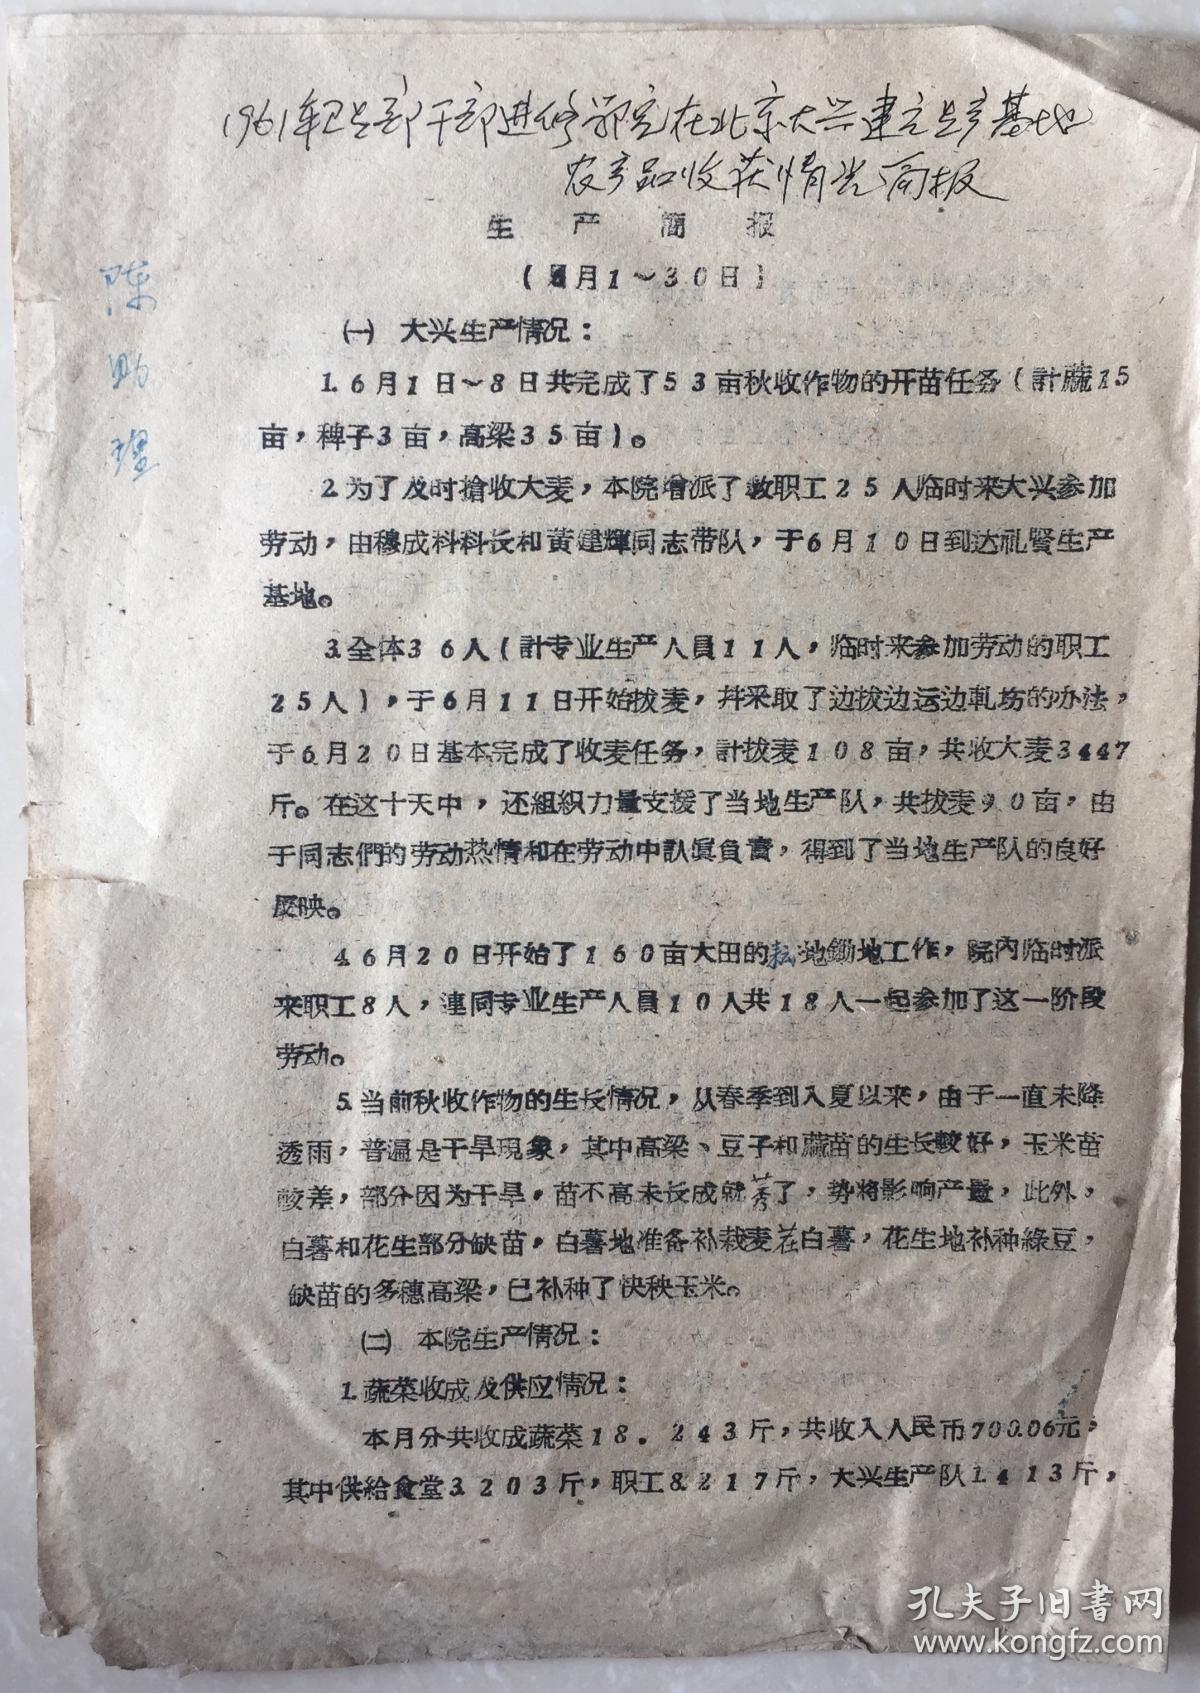 1961年卫生部干部进修学院在北京大兴建立生产基地
农产品收获情况简报
生产简报
(6月1～30日)
陈
助
理
㈠ 大兴生产情况：
1.6月1日～8日共完成了53亩秋收作物的开苗任务(計蔴15
亩，稗子3亩，高梁35亩)。
2.为了及时搶收大麦，本院增派了教职工25人临时来大兴参加
劳动，由穆成科科长和黄建輝同志带队，于6月10日到达礼賢生产
基地。
3.全体36人(計专业生产人員11人，临时来参加劳动的职工
25人)，于6月11日开始拔麦，并采取了边拔边运边軋坊的办法，
于6月20日基本完成了收麦任务，計拔麦108亩，共收大麦3447
斤。在这十天中，还組织力量支援了当地生产队，共拔麦90亩，由
于同志們的劳动热情和在劳动中认眞負責，得到了当地生产队的良好
反映。
4.6月20日开始了160亩大田的耘地鋤地工作，院內临时派
来职工8人，連同专业生产人員10人共18人一起参加了这一阶段
劳动。
5.当前秋收作物的生长情况，从春季到入夏以来，由于一直未降
透雨，普遍是干旱現象，其中高梁、豆子和蔴苗的生长較好，玉米苗
較差，部分因为干旱，苗不高未长成就莠了，势將影响产量，此外，
白薯和花生部分缺苗，白薯地准备补栽麦茬白薯，花生地补种綠豆，
缺苗的多穗高梁，已补种了快秧玉米。
㈡ 本院生产情况：
1.蔬菜收成及供应情况：
本月分共收成蔬菜18.243斤，共收入人民币700.06元，
其中供給食堂3.203斤，职工8.217斤，大兴生产队1.413斤，
孔夫子旧书网
www.kongfz.com